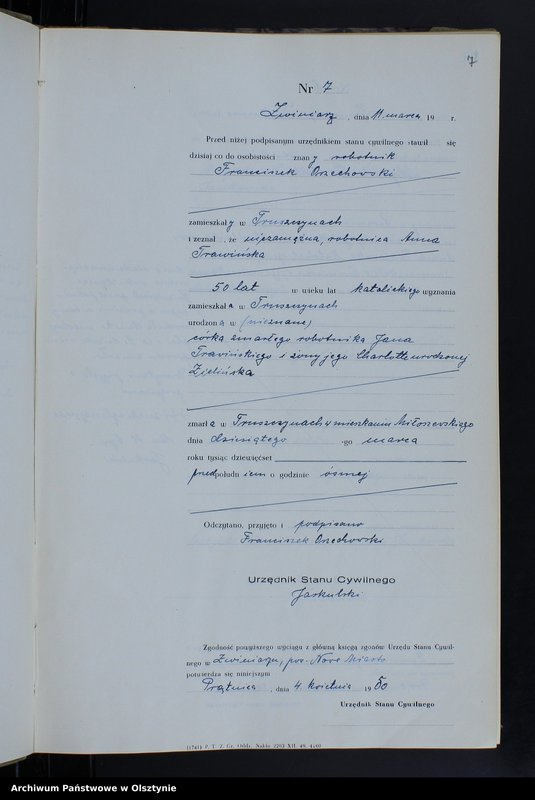 7
Nr 7
Zwiniarz, dnia 11. marca 19 r.
Przed niżej podpisanym urzędnikiem stanu cywilnego stawił się
dzisiaj co do osobistości znany robotnik
Franciszek Orzechowski
zamieszkały w Truszczynach
i zeznał, że niezamężna, robotnica Anna
Trawińska
50 lat w wieku lat katolickiego wyznania
zamieszkała w Truszczynach
urodzoną w (nieznane)
córka zmarłego robotnika Jana
Trawińskiego i żony jego Charlotte urodzonej
Zielińska
zmarła w Truszczynach w mieszkaniu Miłoszewskiego
dnia dziesiątego -go marca
roku tysiąc dziewięćset
przedpołudniem o godzinie ósmej
Odczytano, przyjęto i podpisano
Franciszek Orzechowski
Urzędnik Stanu Cywilnego
Jaskulski
Zgodność powyższego wyciągu z główną księgą zgonów Urzędu Stanu Cywil-
nego w Zwiniarzu, pow. Nowe Miasto
potwierdza się niniejszym
Prątnica, dnia 4. kwietnia 1950
Urzędnik Stanu Cywilnego
(1741) P. T. Z. Gr. Oddz. Nakło 2203 XII. 48.
Archiwum Państwowe w Olsztynie